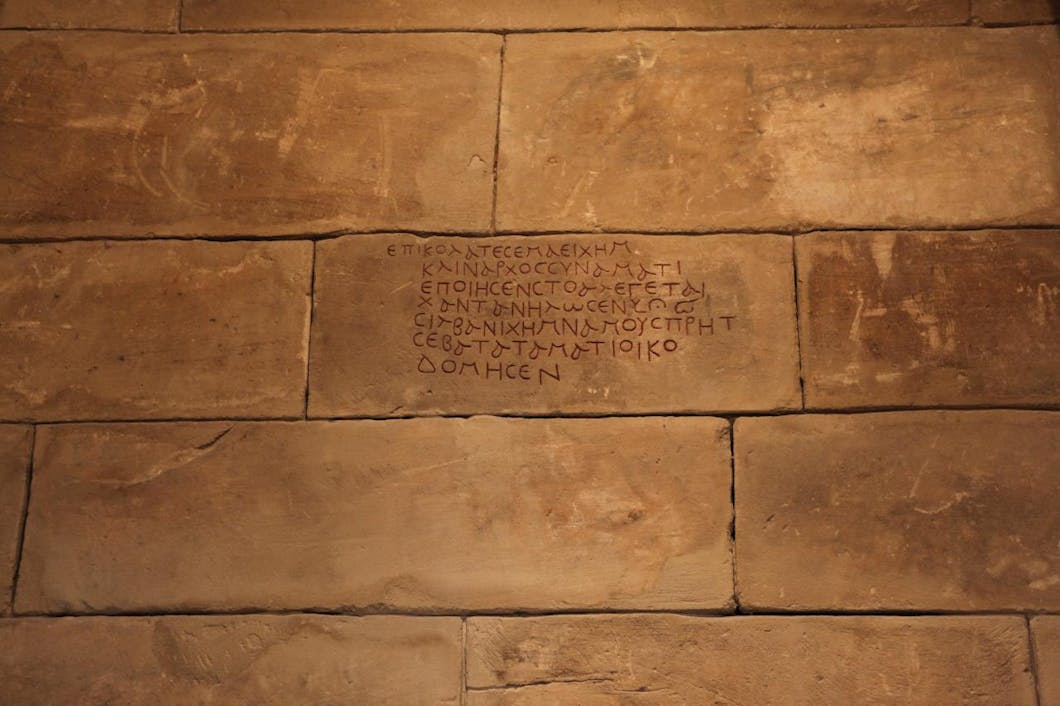 ΕΠΙΚΟΛΑΤΕCΕΜΑΕΙΧΗΜ
ΚΛΙΝΑΡΧΟCCΥΝΑΜΑΤΙ
ΕΠΟΙΗCΕΝCΤΟΑΛΕΓΕΤΑΙ
ΧΑΝΤΑΝΗΛΩCΕΝ
CΙΛΒΑΝΙΧΗΜΝΑΜΟΥCΠΡΗΤ
CΕΒΑΤΑΤΑΜΑΤΙΟΙΚΟ
ΔΟΜΗCΕΝ